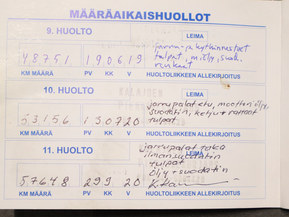 MÄÄRÄAIKAISHUOLLOT
9. HUOLTO
LEIMA
jarru- ja kytkinnesteet
tulpat, öljy, suod.
renkaat
48751 190619
KM MÄÄRÄ PV KK V HUOLTOLIIKKEEN ALLEKIRJOITUS
10. HUOLTO
LEIMA
jarrupalat etu, moottori öljy,
suodatin, ketju + rattaat
tulpat
53156 130720
KM MÄÄRÄ PV KK V HUOLTOLIIKKEEN ALLEKIRJOITUS
11. HUOLTO
LEIMA
jarrupalat taka
ilmansuodatin
tulpat
Öljy + suodatin
57648 299 20
KM MÄÄRÄ PV KK V HUOLTOLIIKKEEN ALLEKIRJOITUS